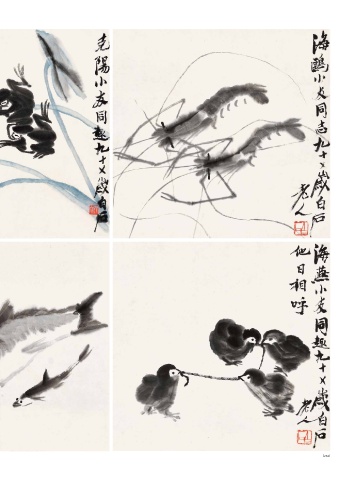 克陽小友同趣九十乂歲白石
海鷗小友同志九十乂歲白石
老人
海燕小友同趣九十乂歲白石
老人
他日相呼